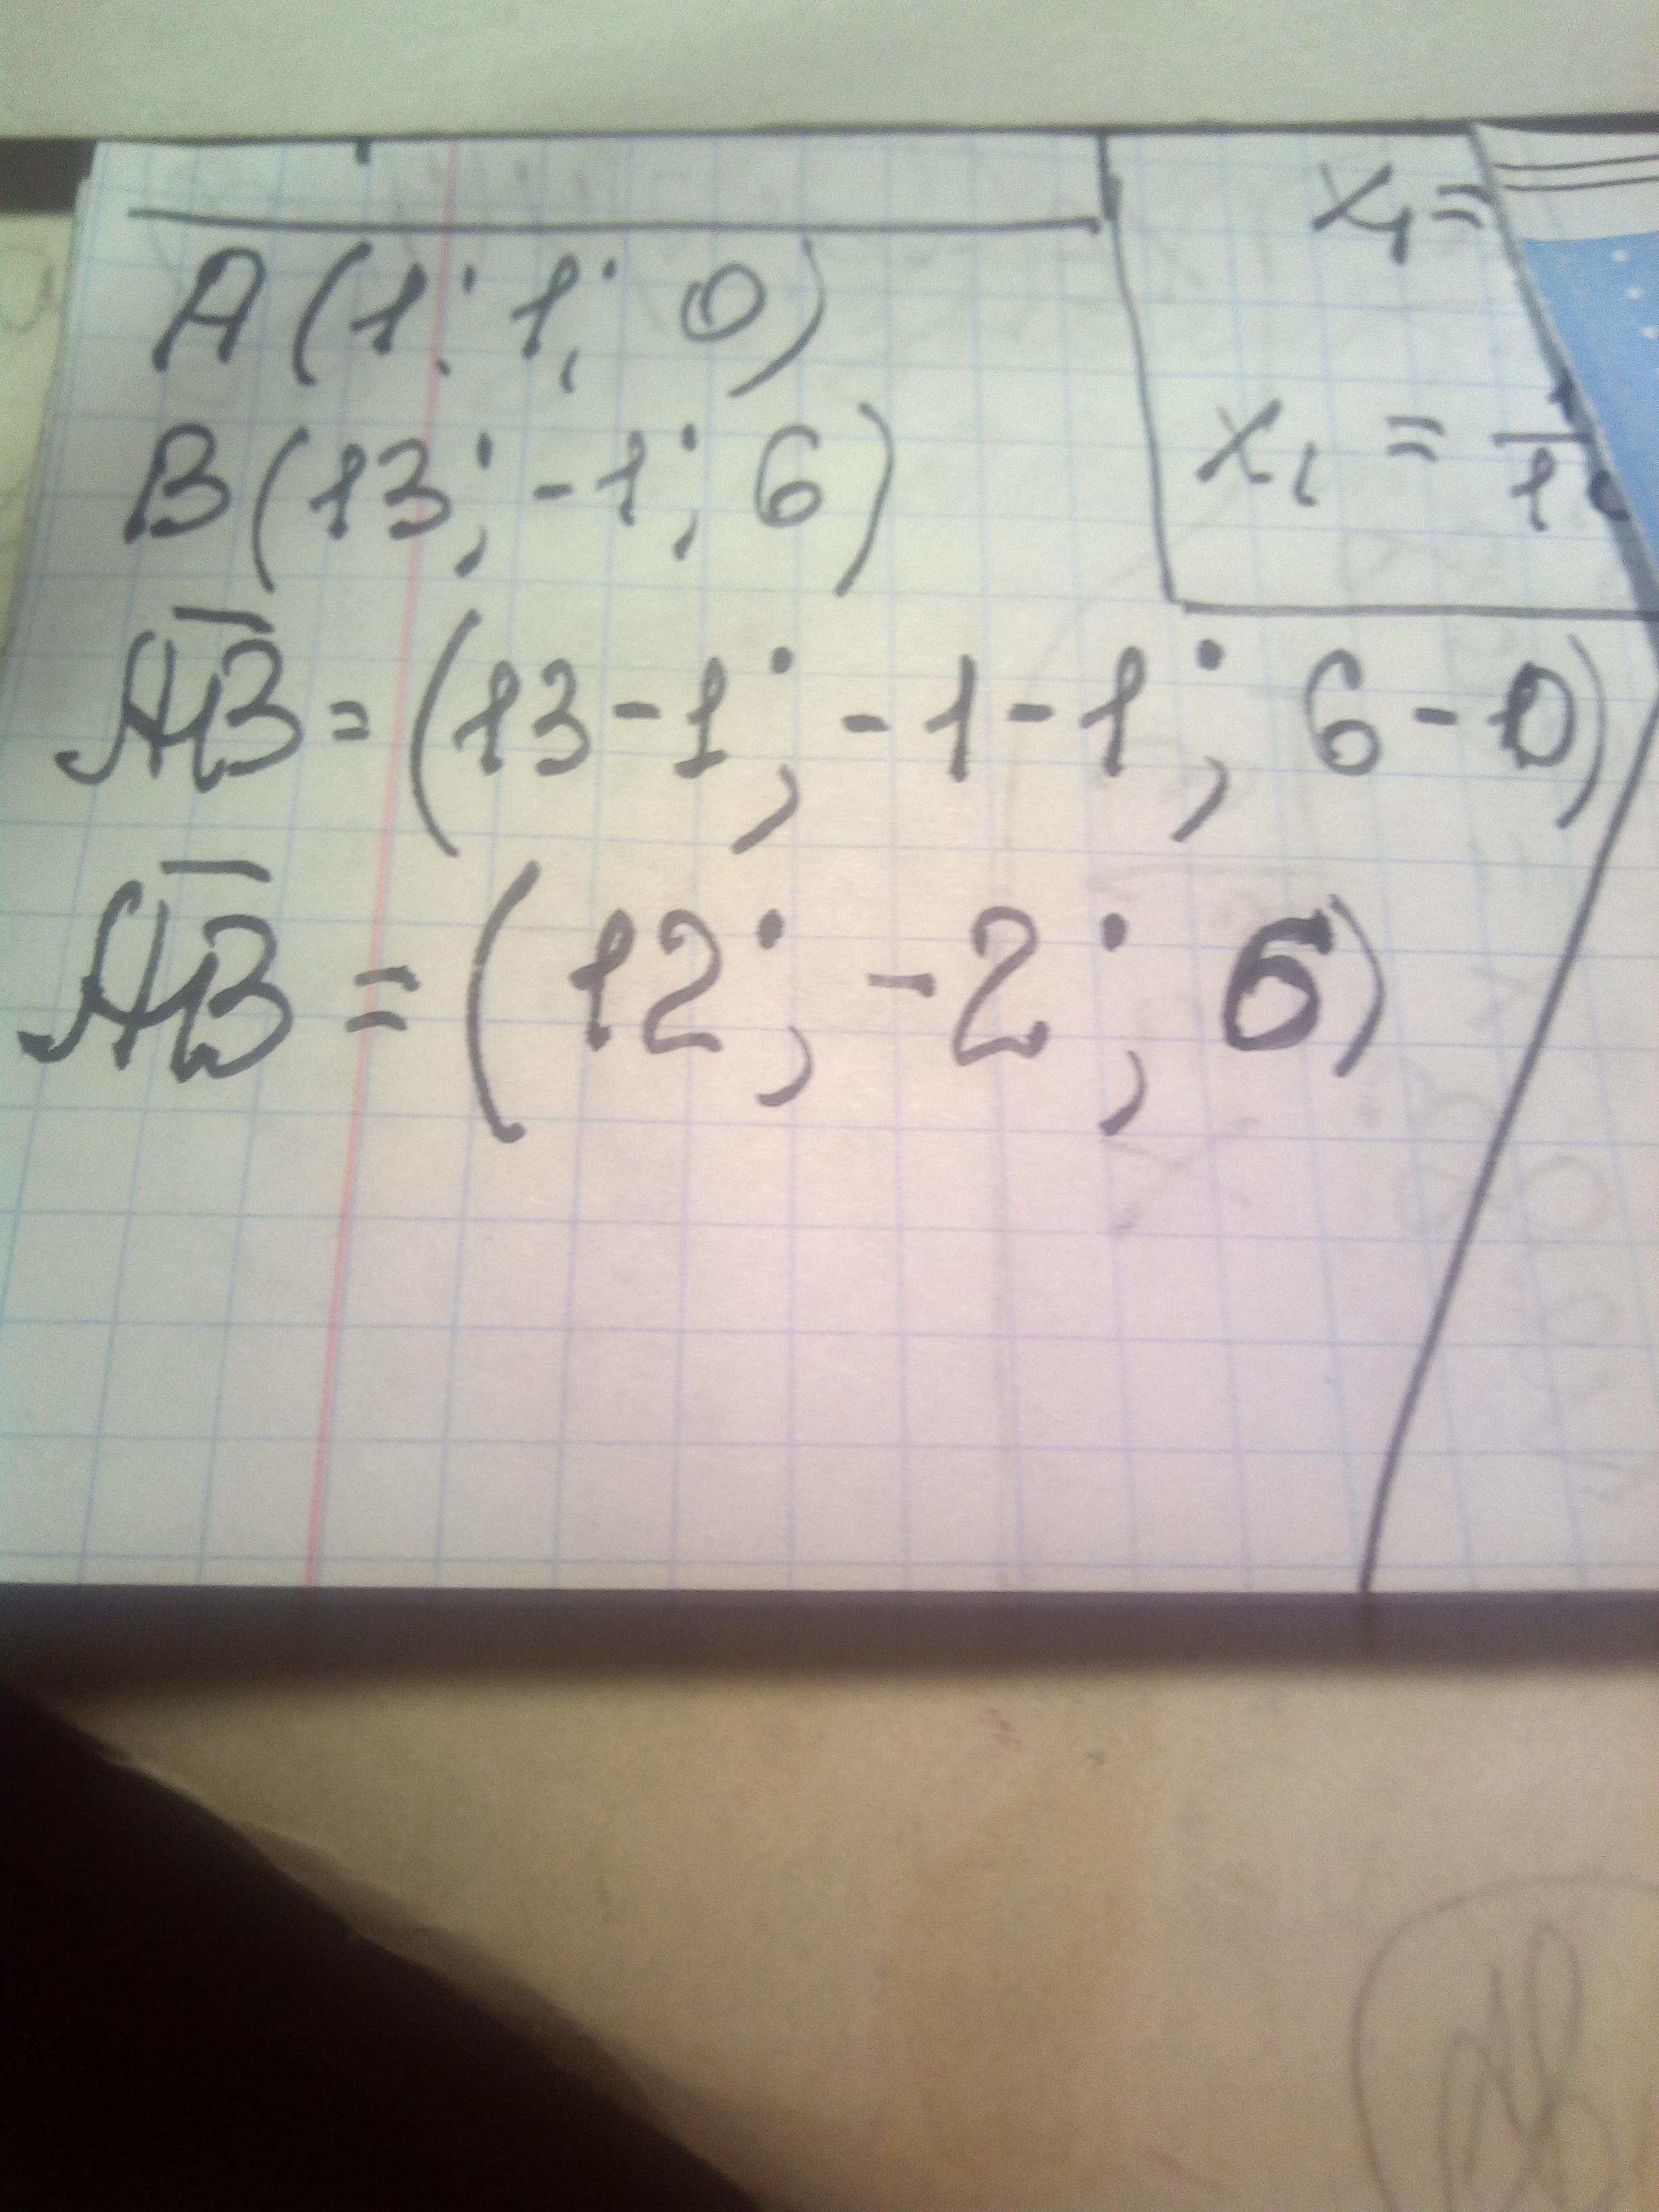 A(1; 1; 0)
B(13; -1; 6)
AB = (13-1; -1-1; 6-0)
AB = (12; -2; 6)
x₁ =
x₂ =